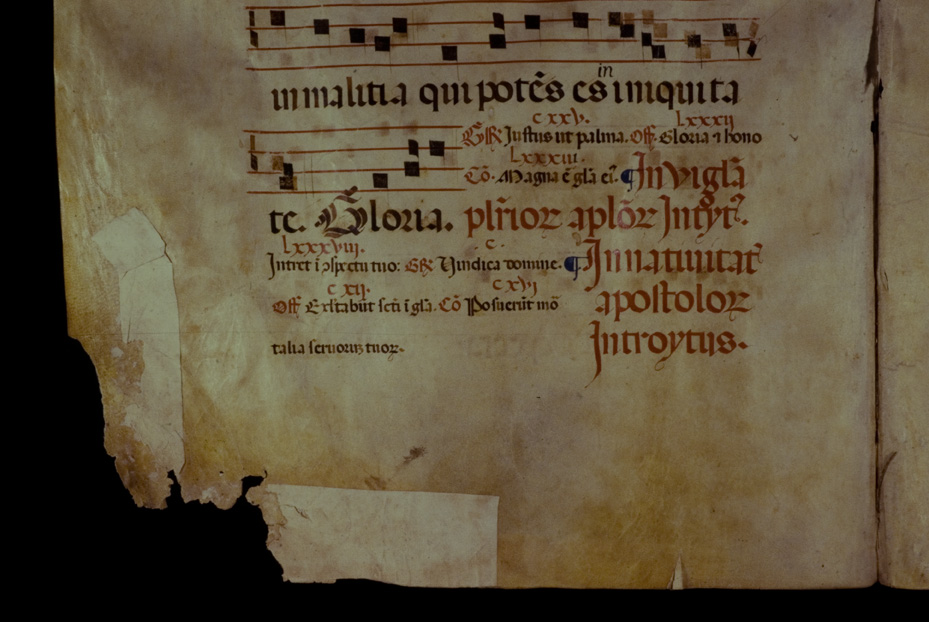 in
in malitia qui potēs es iniquita
c xxv. Lxxxii
Gr̄ Justus ut palma. Off̄. Gloria ⁊ hono
Lxxxiii.
Cō. Magna ē gl̄a ei. ¶ In vigl̄a
te. Gloria. plr̄ior apl̄oꝝ Intyt᷒.
Lxxxviii. c.
Intret ī ɔspectu tuo: Gr̄ Vindica domine. ¶ In natiuitat᷒
c xii. c xvi
Off̄ Exltabūt scti ī gl̄a. Cō Posuerūt mō apostoloꝝ
talia seruoruꝫ tuoꝝ. Introytus.